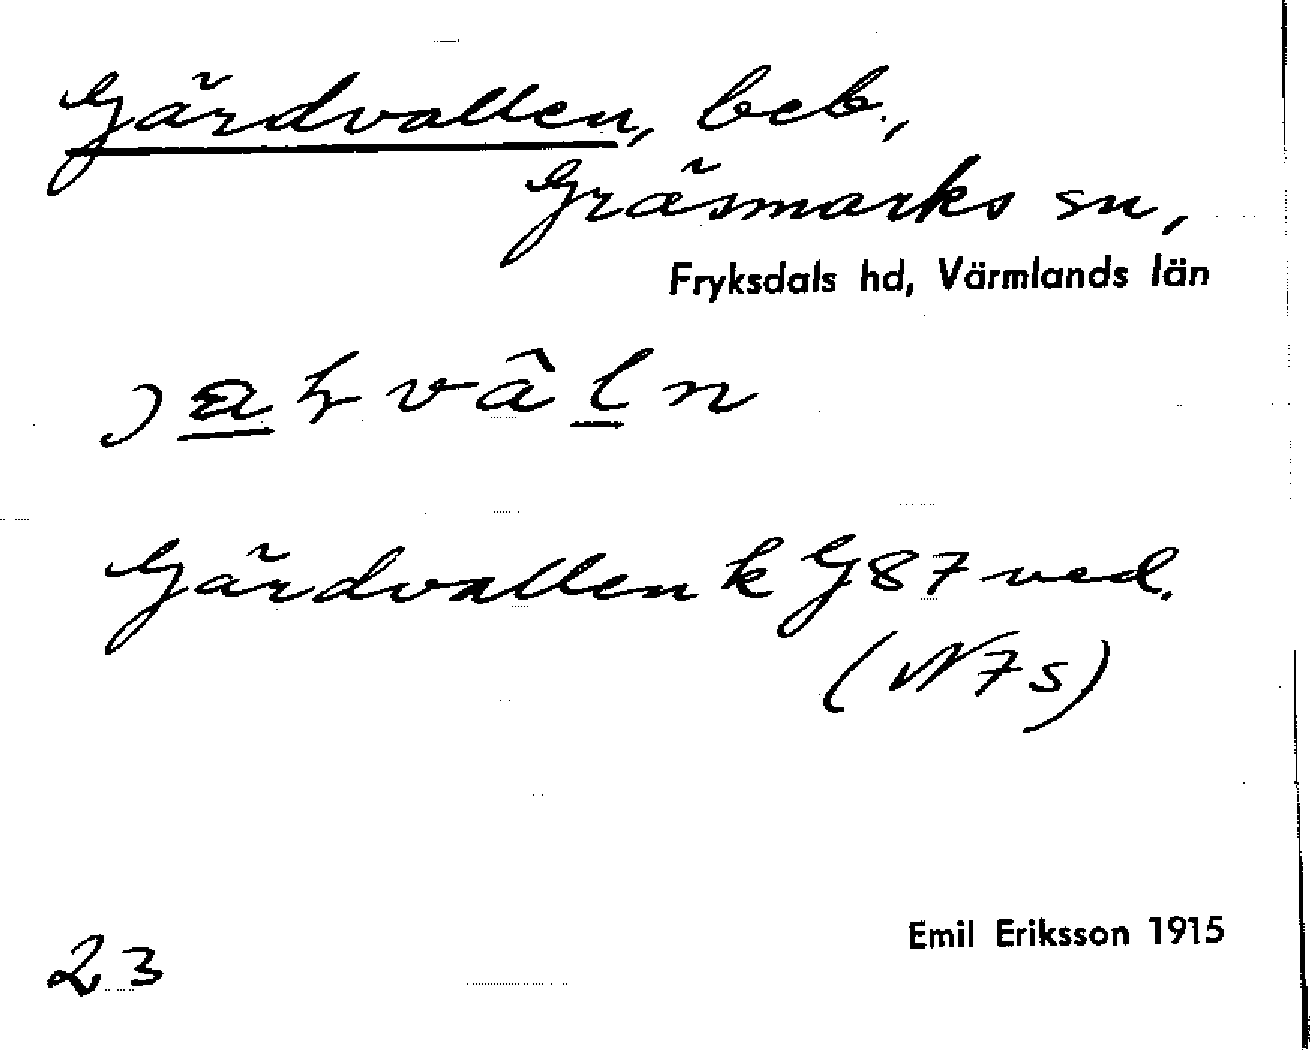 Gärdvallen, beb.,
Gräsmarks sn,
Fryksdals hd, Värmlands län
Gärdvallen k G87 ved.
(N7s)
23
Emil Eriksson 1915